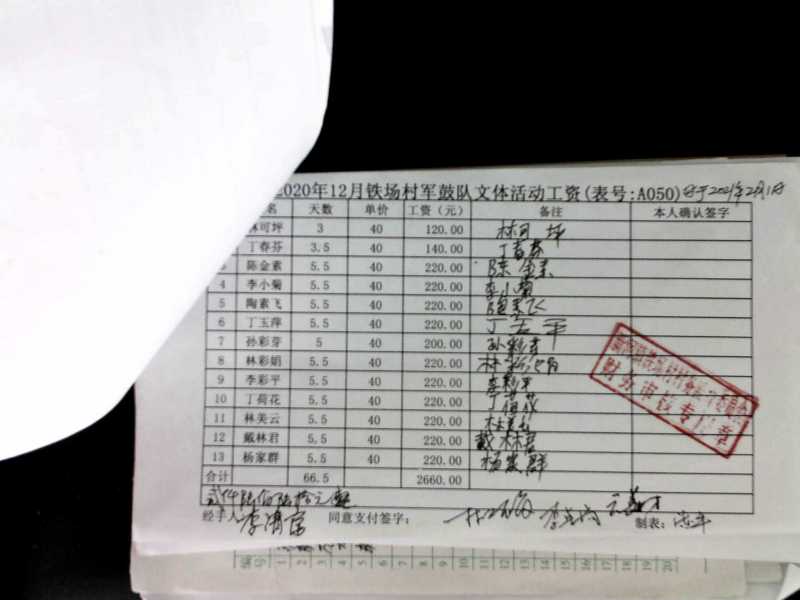 2020年12月铁场村军鼓队文体活动工资(表号:A050) 2021年2月1日
名 天数 单价 工资（元） 备注 本人确认签字
林可坪 3 40 120.00 林可坪
丁春芬 3.5 40 140.00 丁春芬
3 陈金素 5.5 40 220.00 陈金素
4 李小菊 5.5 40 220.00 李小菊
5 陶素飞 5.5 40 220.00 陶素飞
6 丁玉萍 5.5 40 220.00 丁玉平
7 孙彩芽 5 40 200.00 孙彩芽
8 林彩娟 5.5 40 220.00 林彩娟
9 李彩平 5.5 40 220.00 李彩平
10 丁荷花 5.5 40 220.00 丁荷花
11 林美云 5.5 40 220.00 林美云
12 戴林君 5.5 40 220.00 戴林君
13 杨家群 5.5 40 220.00 杨家群
合计 66.5 2660.00
财务审核专用章
贰仟陆佰陆拾元整
经手人 同意支付签字： 制表：
编号 1 2 3 4 5 6 7 8 9 10 11 12 13 14 15 16 17 18 19 20